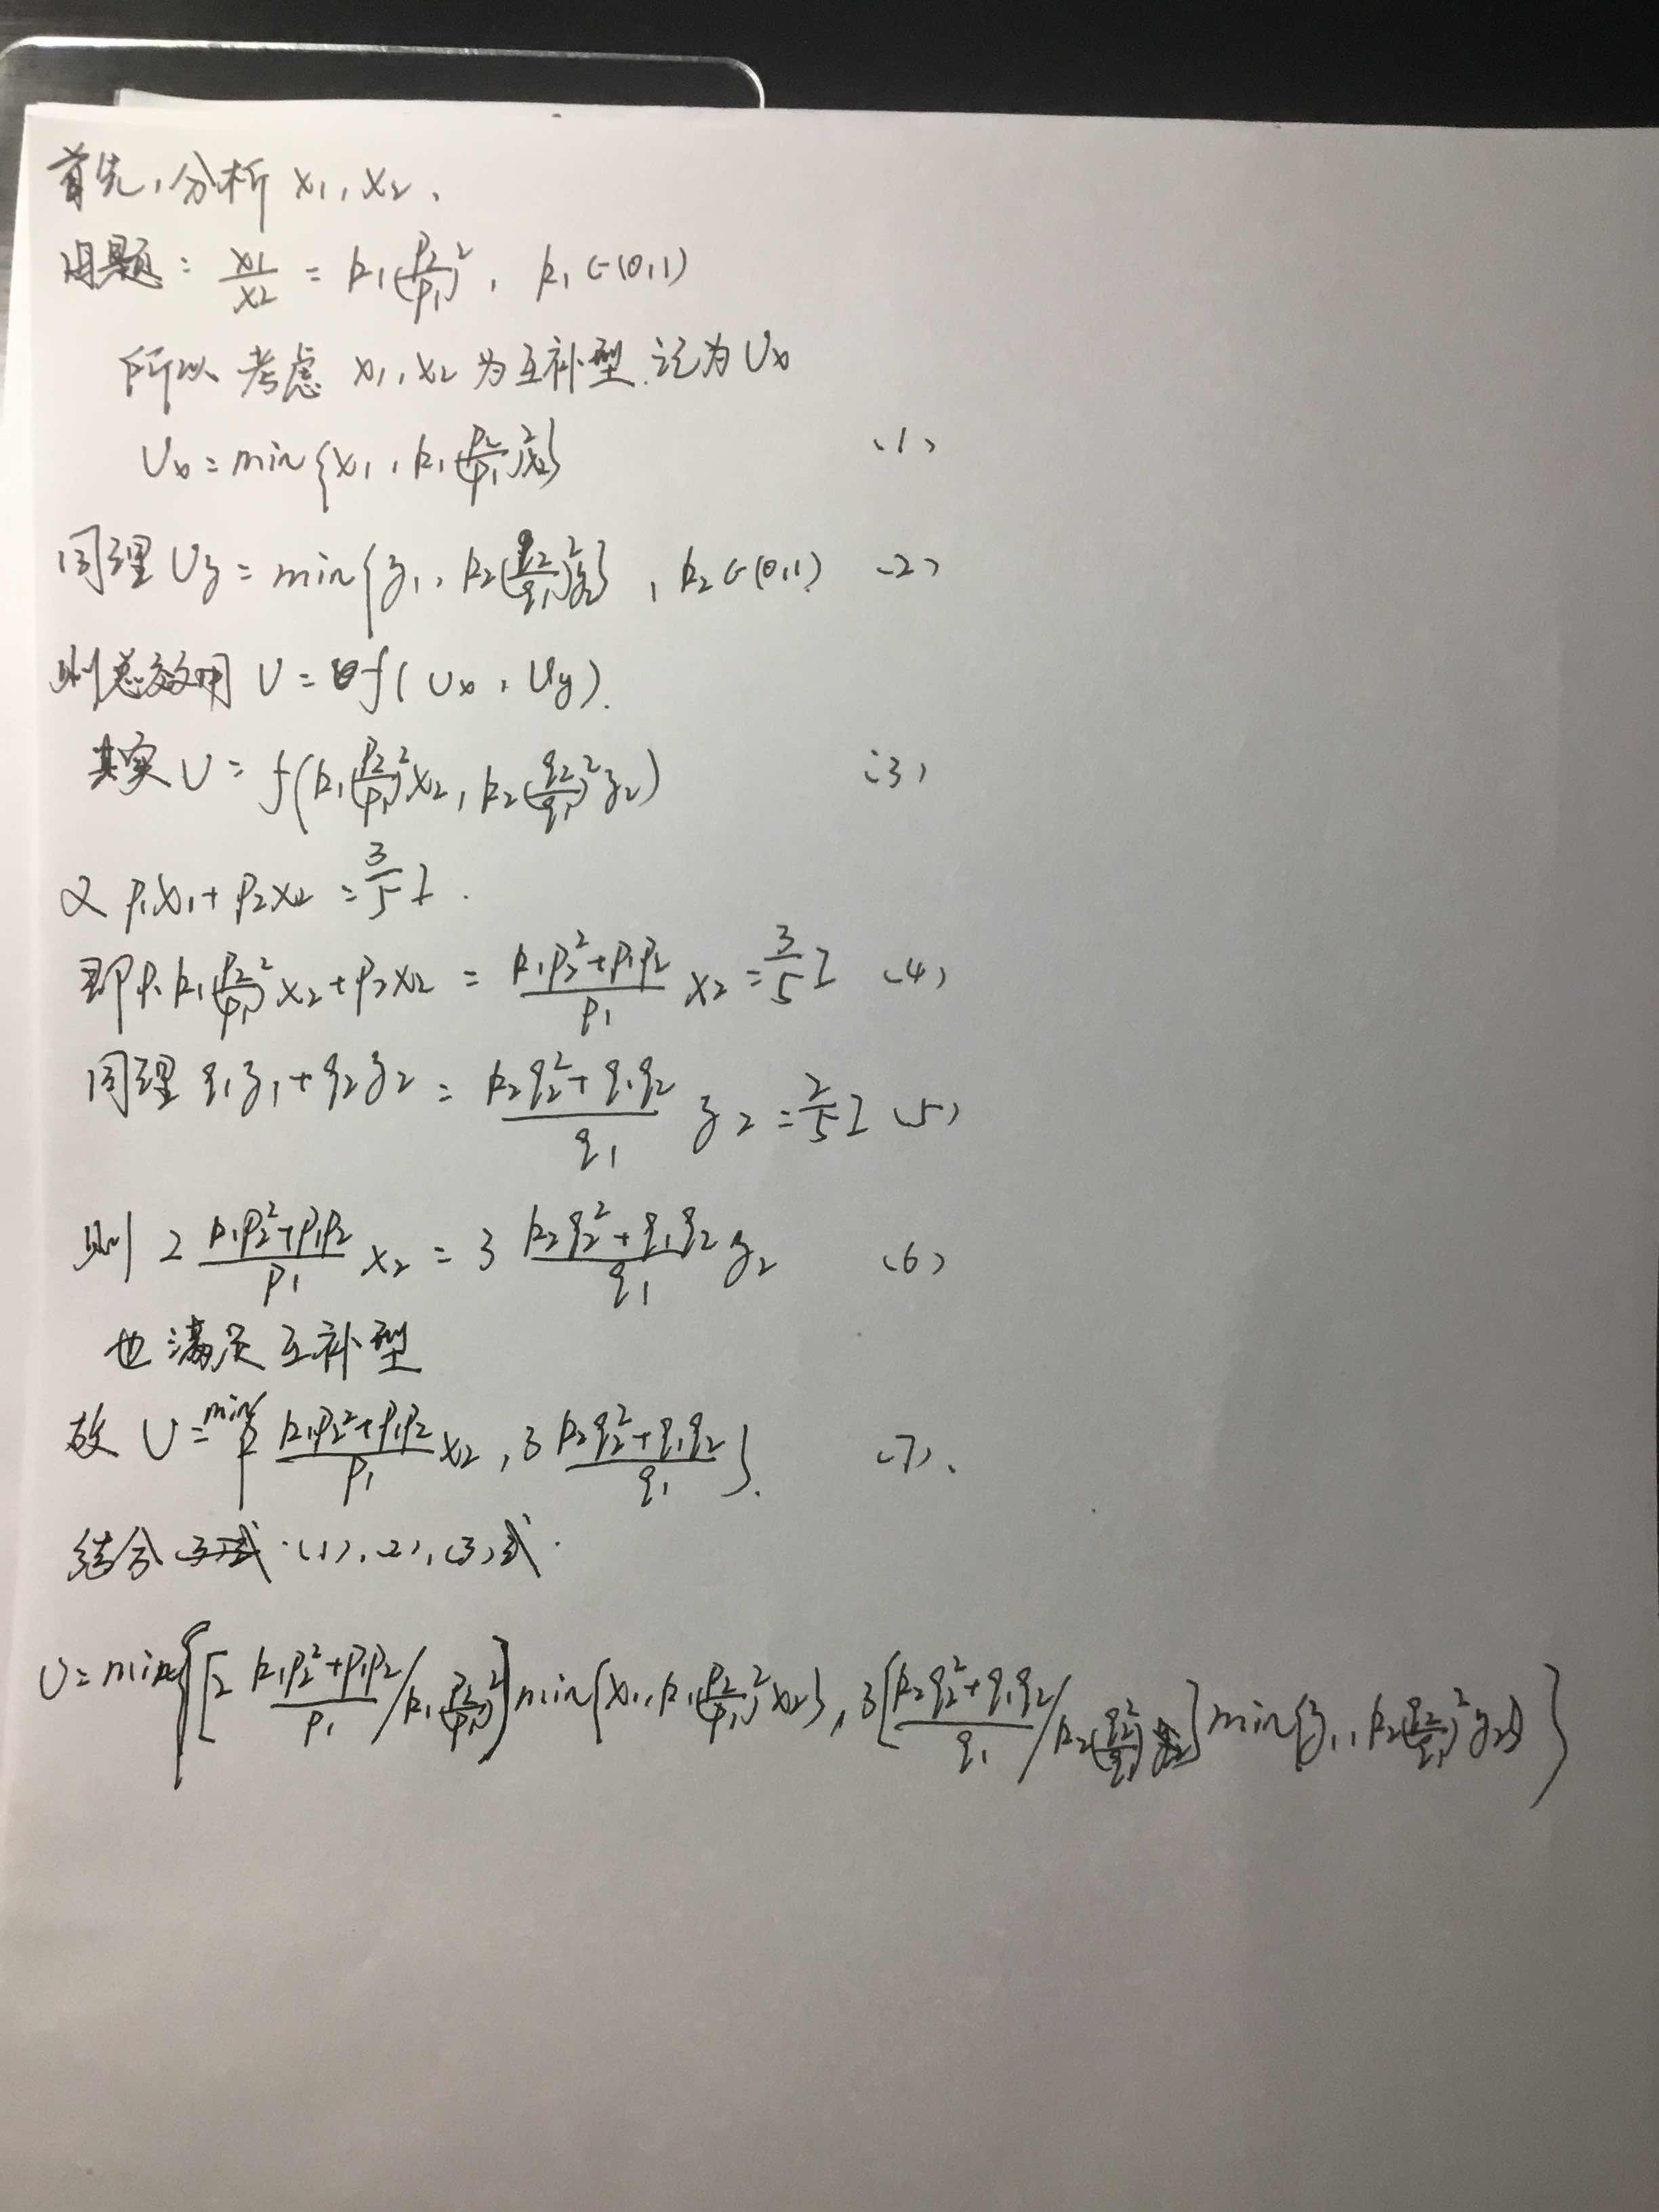 首先,分析 x₁, x₂.
因题: x₁/x₂ = k₁(p₂/p₁)², k₁∈(0,1)
所以 考虑 x₁, x₂ 为互补型.记为 Uₓ
Uₓ = min{x₁, k₁(p₂/p₁)²x₂} (1)
同理 Uy = min{y₁, k₂(q₂/q₁)²y₂}, k₂∈(0,1) (2)
则总效用 U = f(Uₓ, Uy).
其实 U = f(k₁(p₂/p₁)²x₂, k₂(q₂/q₁)²y₂) (3)
又 p₁x₁ + p₂x₂ = 3/5 I.
即 p₁k₁(p₂/p₁)²x₂ + p₂x₂ = (k₁p₂² + p₁p₂)/p₁ x₂ = 3/5 I (4)
同理 q₁y₁ + q₂y₂ = (k₂q₂² + q₁q₂)/q₁ y₂ = 2/5 I (5)
则 2 (k₁p₂² + p₁p₂)/p₁ x₂ = 3 (k₂q₂² + q₁q₂)/q₁ y₂ (6)
也满足互补型
故 U = min{ (k₁p₂² + p₁p₂)/p₁ x₂, 3 (k₂q₂² + q₁q₂)/q₁ }. (7).
结合 (1), (2), (3)式.
U = min{[2 (k₁p₂² + p₁p₂)/p₁ / k₁(p₂/p₁)²] min{x₁, k₁(p₂/p₁)²x₂}, 3[(k₂q₂² + q₁q₂)/q₁ / k₂(q₂/q₁)²] min{y₁, k₂(q₂/q₁)²y₂}}